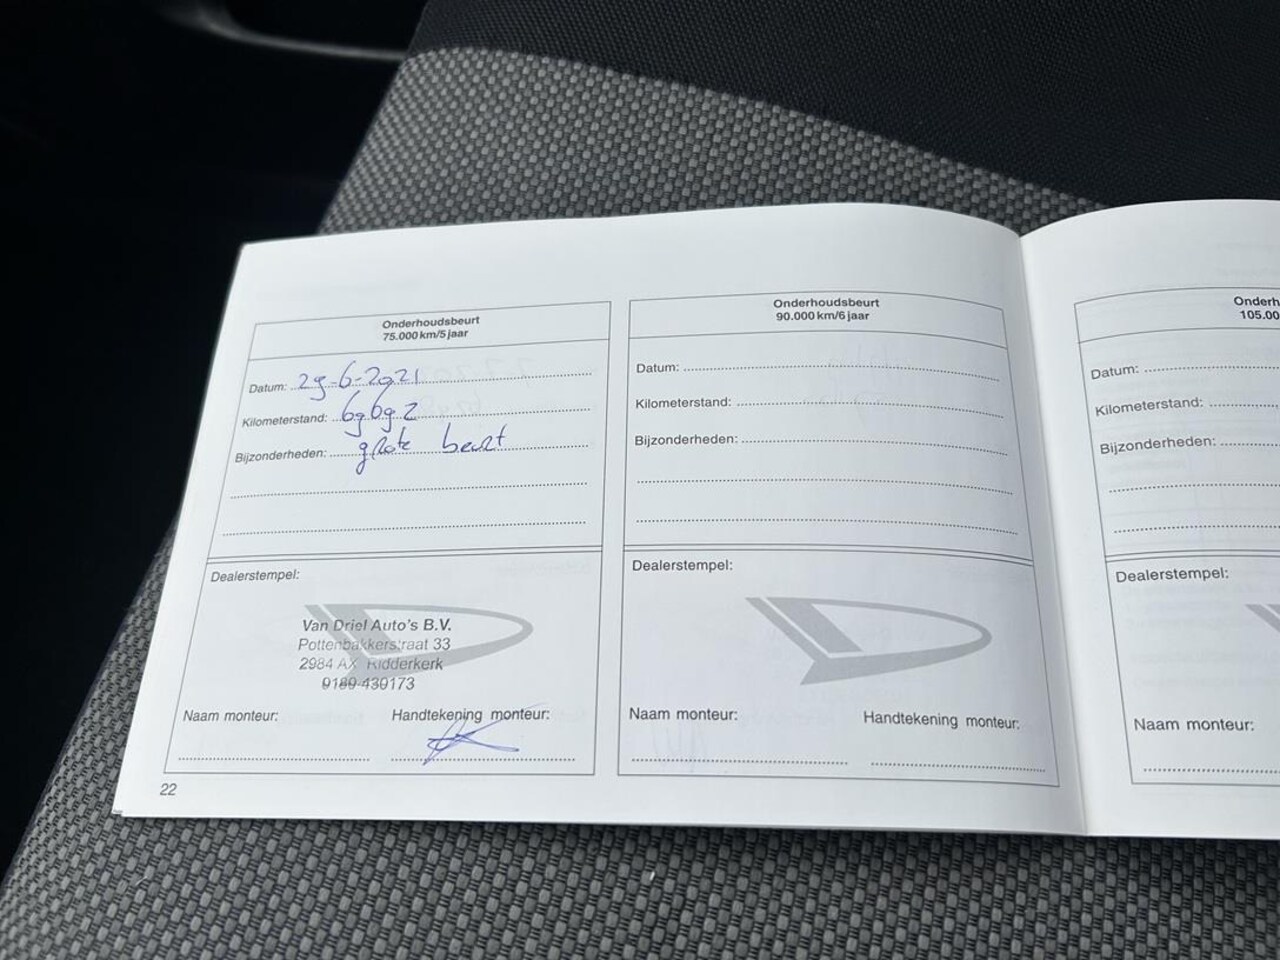 Onderhoudsbeurt
75.000 km/5 jaar
Datum: 29-6-2021
Kilometerstand: 69692
Bijzonderheden: grote beurt
Dealerstempel:
Van Driel Auto's B.V.
Pottenbakkerstraat 33
2984 AX Ridderkerk
0180-430173
Naam monteur:
Handtekening monteur:
22
Onderhoudsbeurt
90.000 km/6 jaar
Datum:
Kilometerstand:
Bijzonderheden:
Dealerstempel:
Naam monteur:
Handtekening monteur:
Onderh
105.00
Datum:
Kilometerstand:
Bijzonderheden:
Dealerstempel:
Naam monteur: